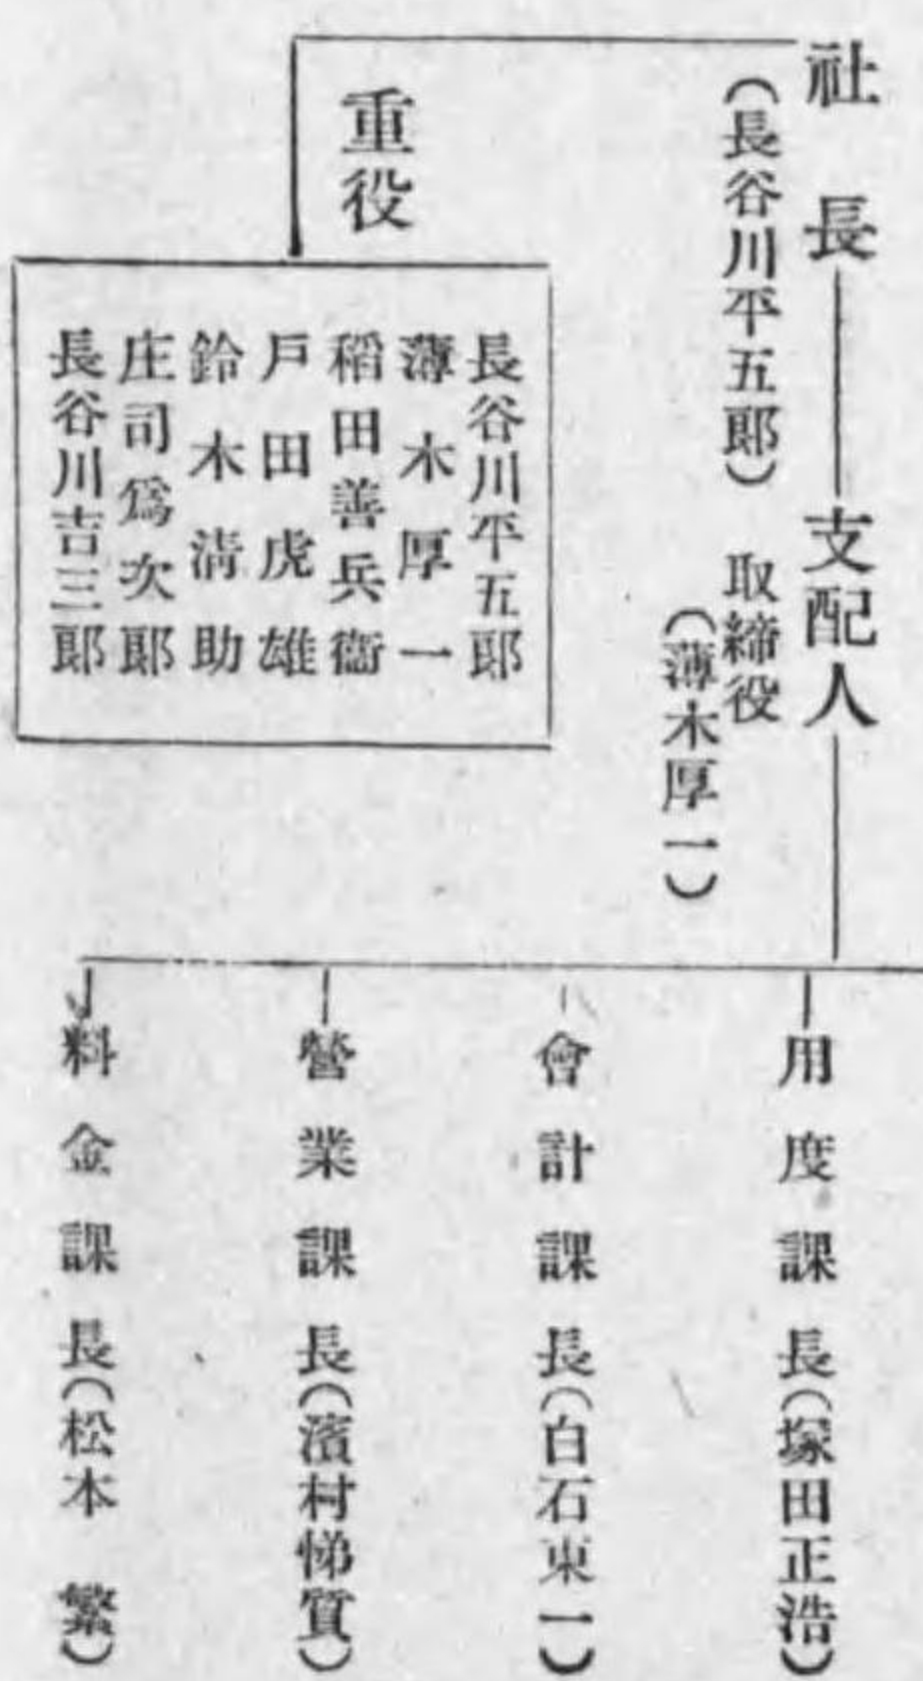 社長
(長谷川平五郎)
支配人
取締役
(薄木厚一)
重役
長谷川平五郎
薄木厚一
稻田善兵衞
戶田虎雄
鈴木淸助
庄司爲次郎
長谷川吉三郎
用度課長(塚田正浩)
會計課長(白石東一)
營業課長(濱村悌質)
料金課長(松本 繁)